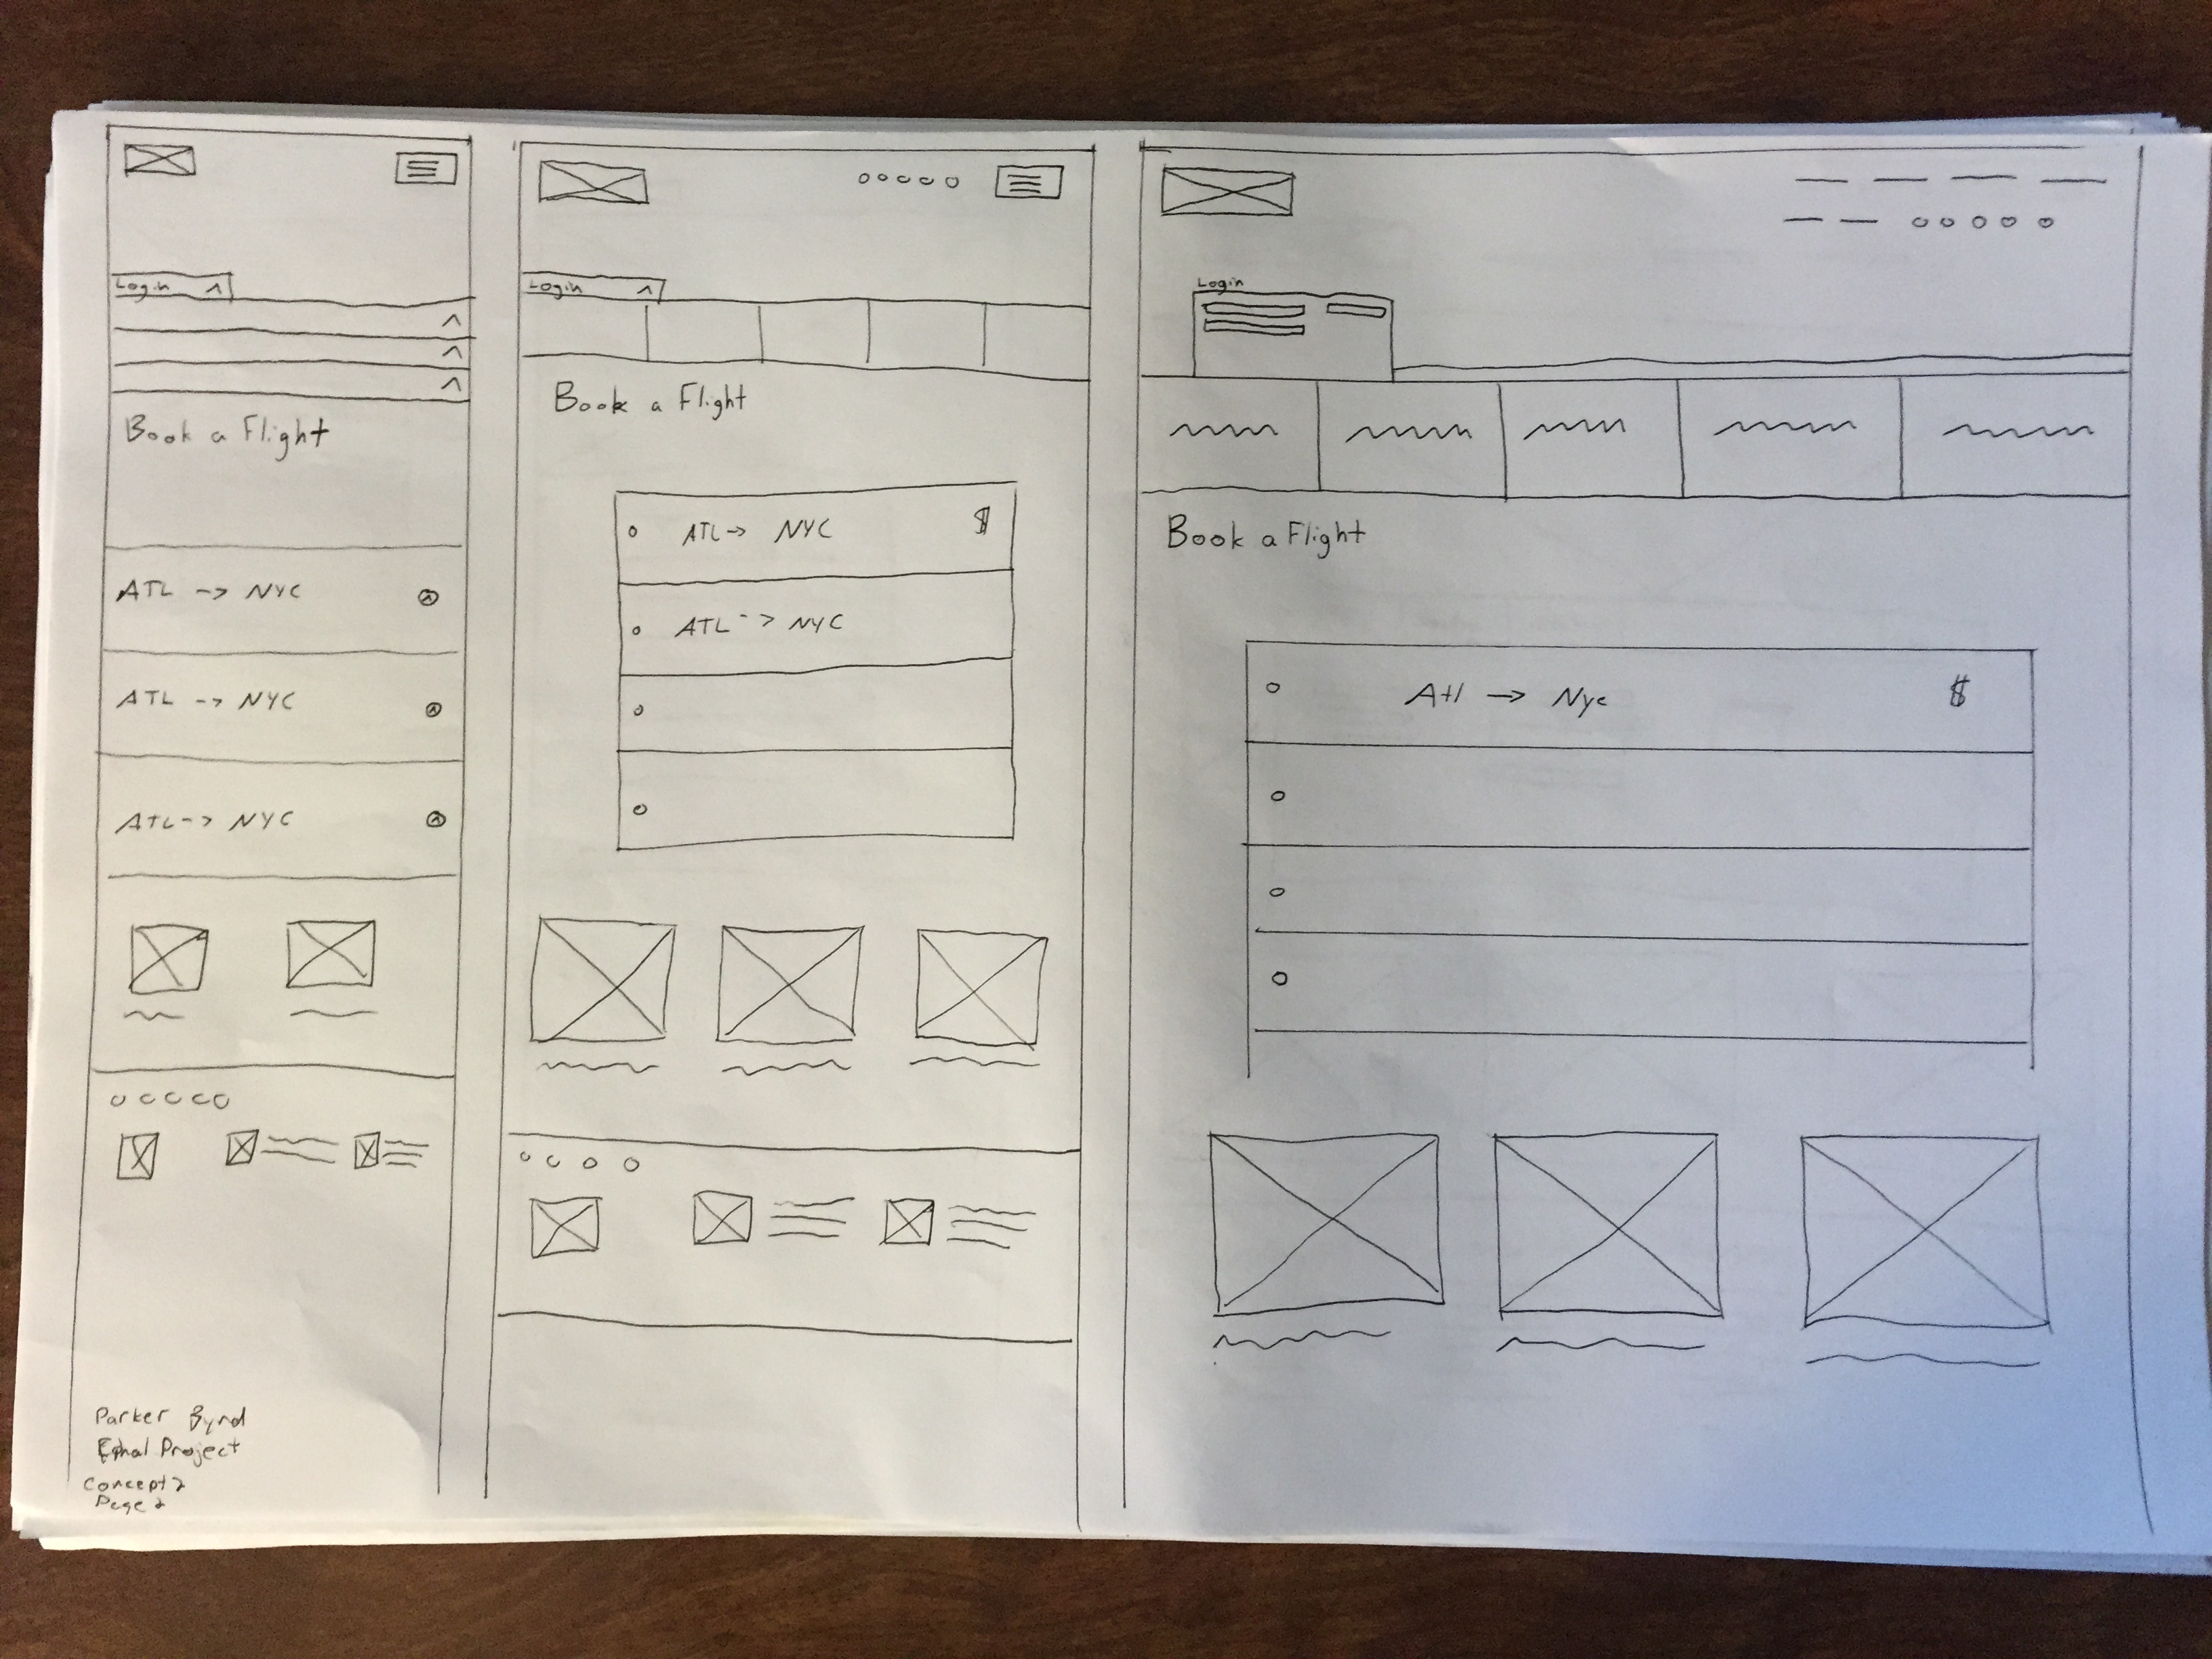 Login ^
Book a Flight
ATL -> NYC
ATL -> NYC
ATL -> NYC
Parker Byrd
Final Project
Concept 2
Page 2
Login ^
Book a Flight
ATL -> NYC $
ATL -> NYC
Login
Book a Flight
Atl → Nyc $